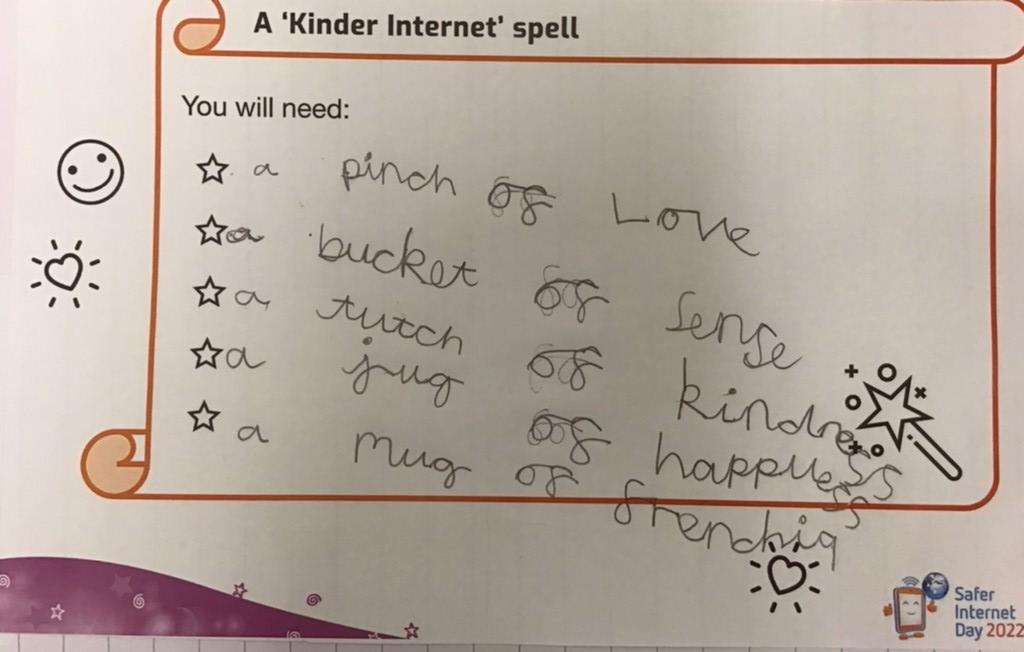 A ‘Kinder Internet’ spell
You will need:
a pinch of Love
a bucket of Sense
a tutch of kindness
a jug of happyess
a mug of frenchiq
Safer
Internet
Day 2022